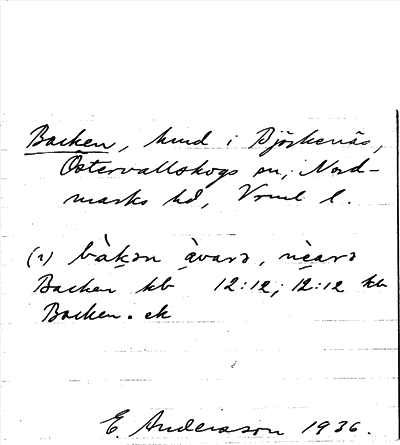 Backen, hmd i Björkenäs,
Östervallskogs sn, Nord-
marks hd, Vrml l.
(1) bàkən àvarə, nèarə
Backen kb 12:12; 12:12 kb
Backen. ek
E. Anderson 1936.